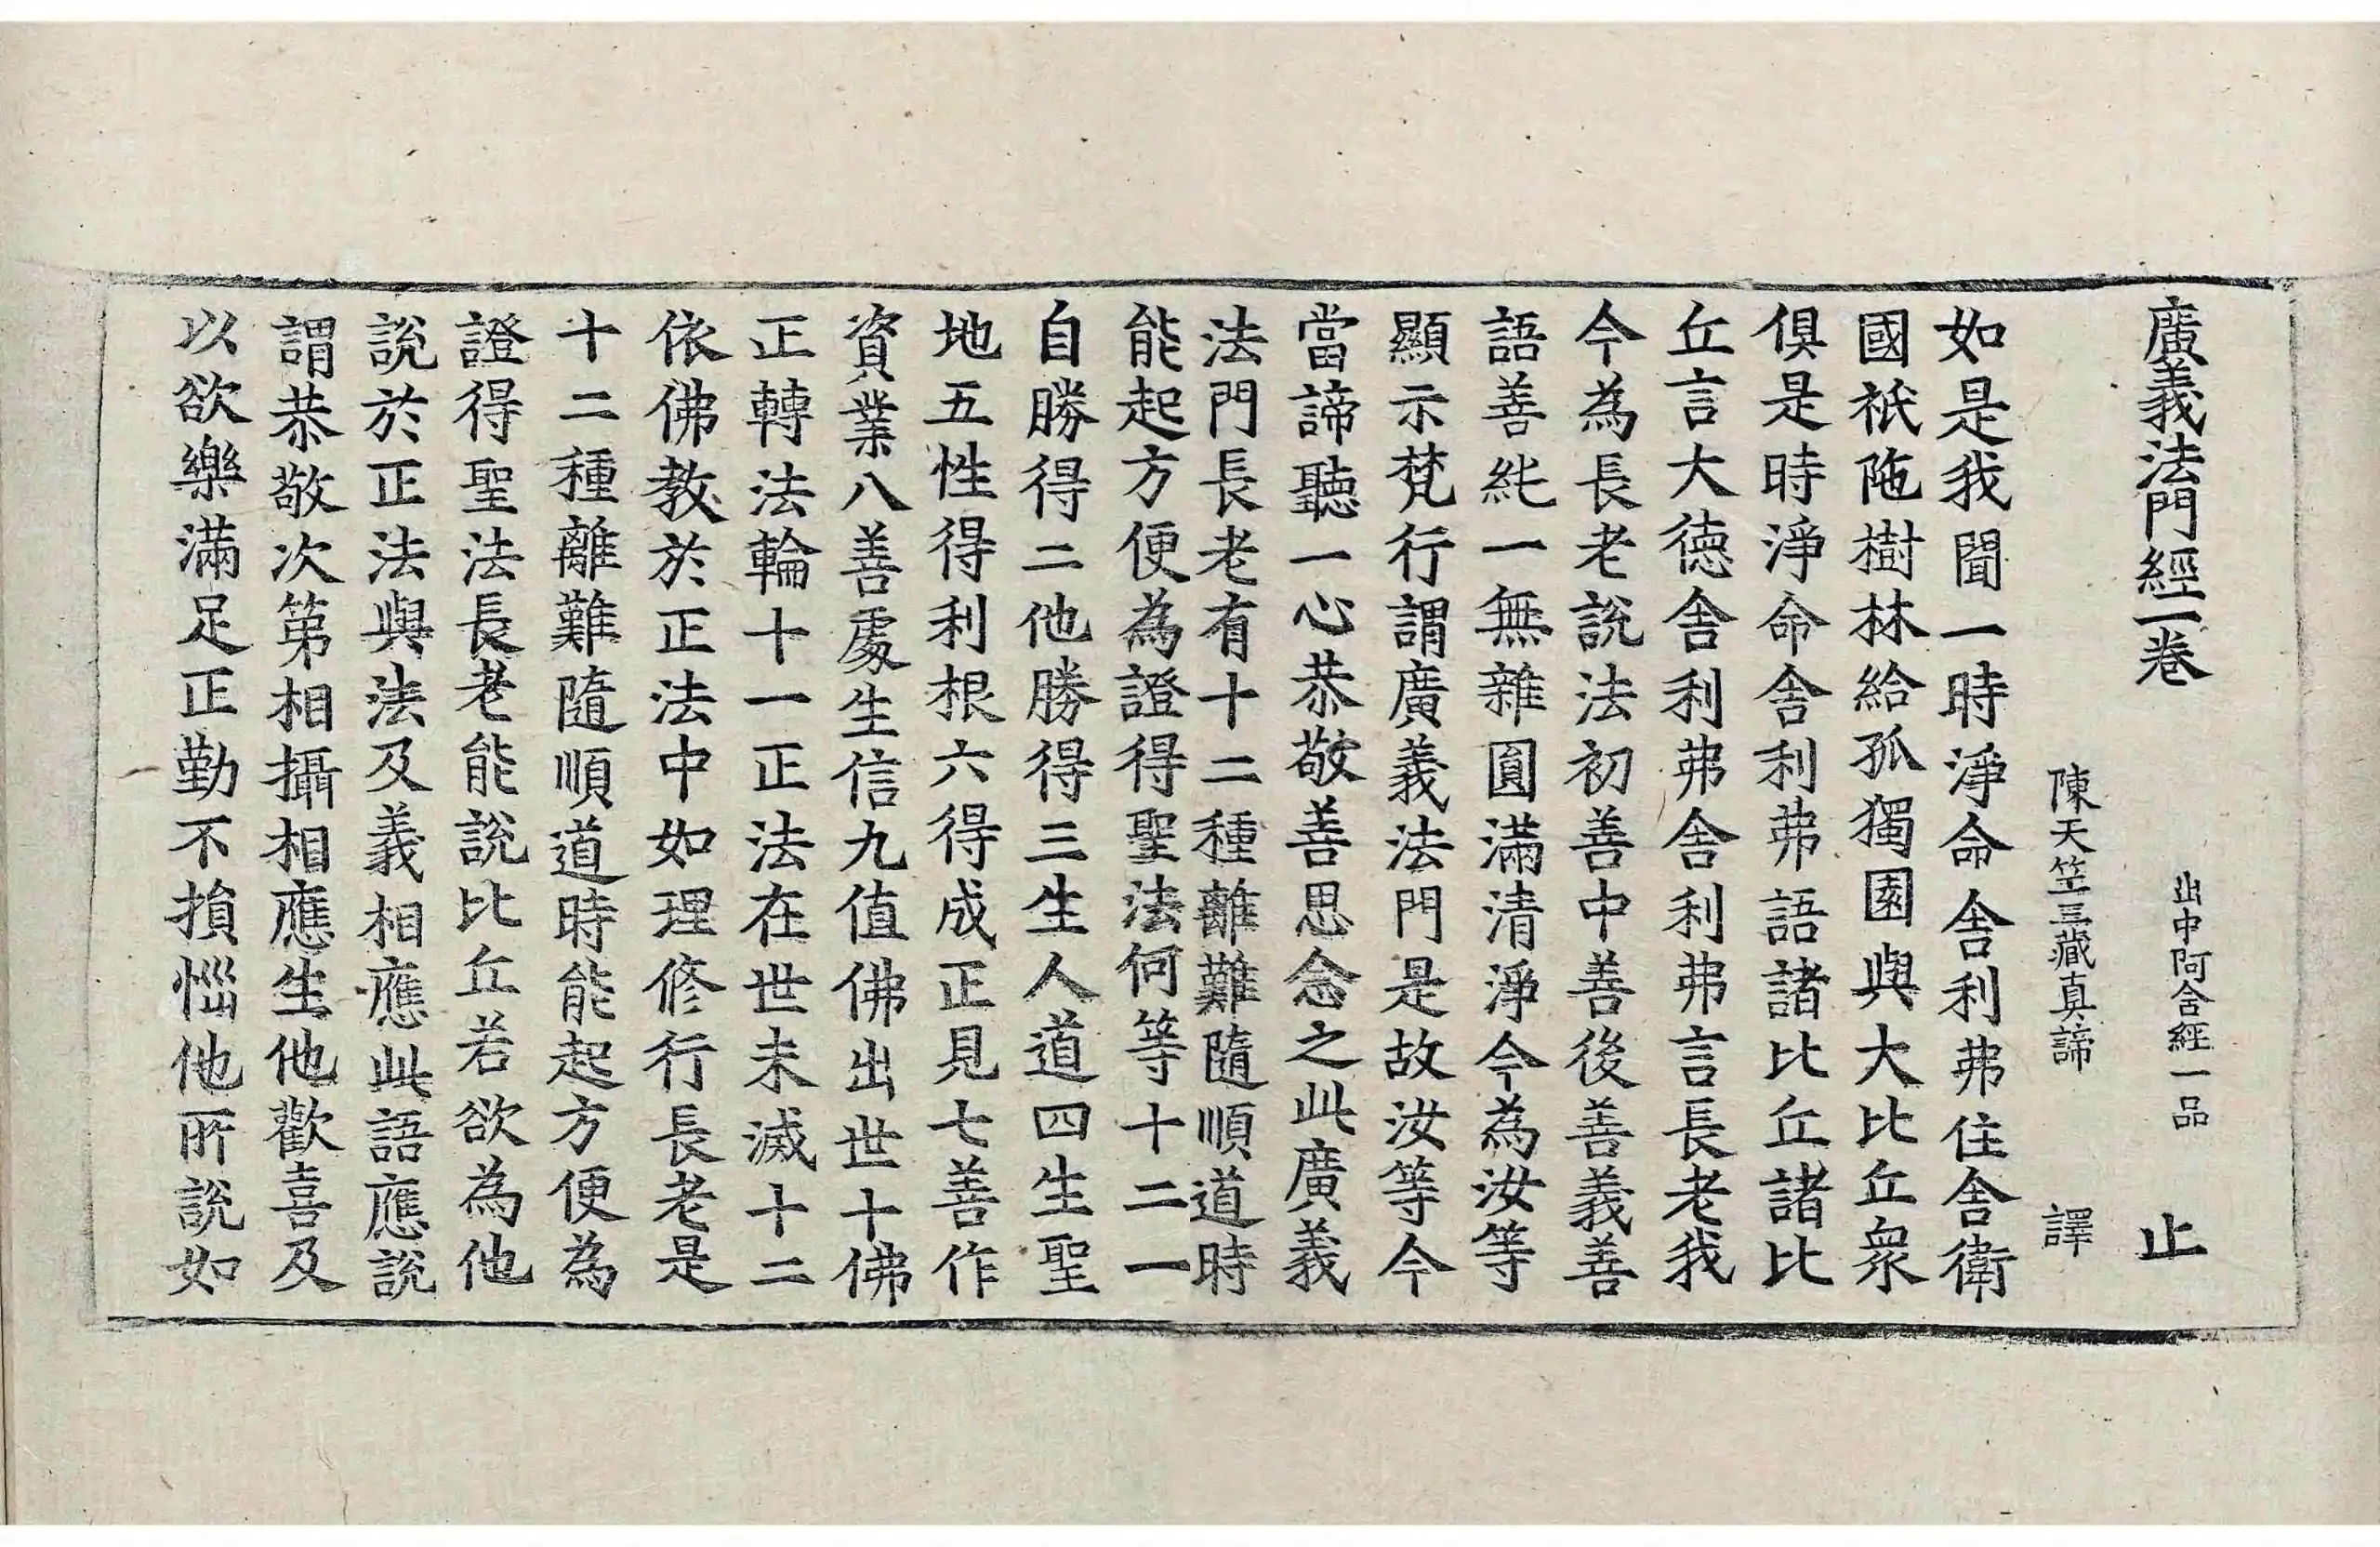 廣義法門經一卷 出中阿含經一品 止
陳天竺三藏真諦 譯
如是我聞一時淨命舍利弗住舍衛
國祇陁樹林給孤獨園與大比丘衆
俱是時淨命舍利弗語諸比丘諸比
丘言大德舍利弗舍利弗言長老我
今為長老說法初善中善後善義善
語善純一無雜圓滿清淨今為汝等
顯示梵行謂廣義法門是故汝等今
當諦聽一心恭敬善思念之此廣義
法門長老有十二種離難隨順道時
能起方便為證得聖法何等十二一
自勝得二他勝得三生人道四生聖
地五性得利根六得成正見七善作
資業八善處生信九值佛出世十佛
正轉法輪十一正法在世未滅十二
依佛教於正法中如理修行長老是
十二種離難隨順道時能起方便為
證得聖法長老能說比丘若欲為他
說於正法與法及義相應此語應說
謂恭敬次第相攝相應生他歡喜及
以欲樂滿足正勤不損惱他所說如